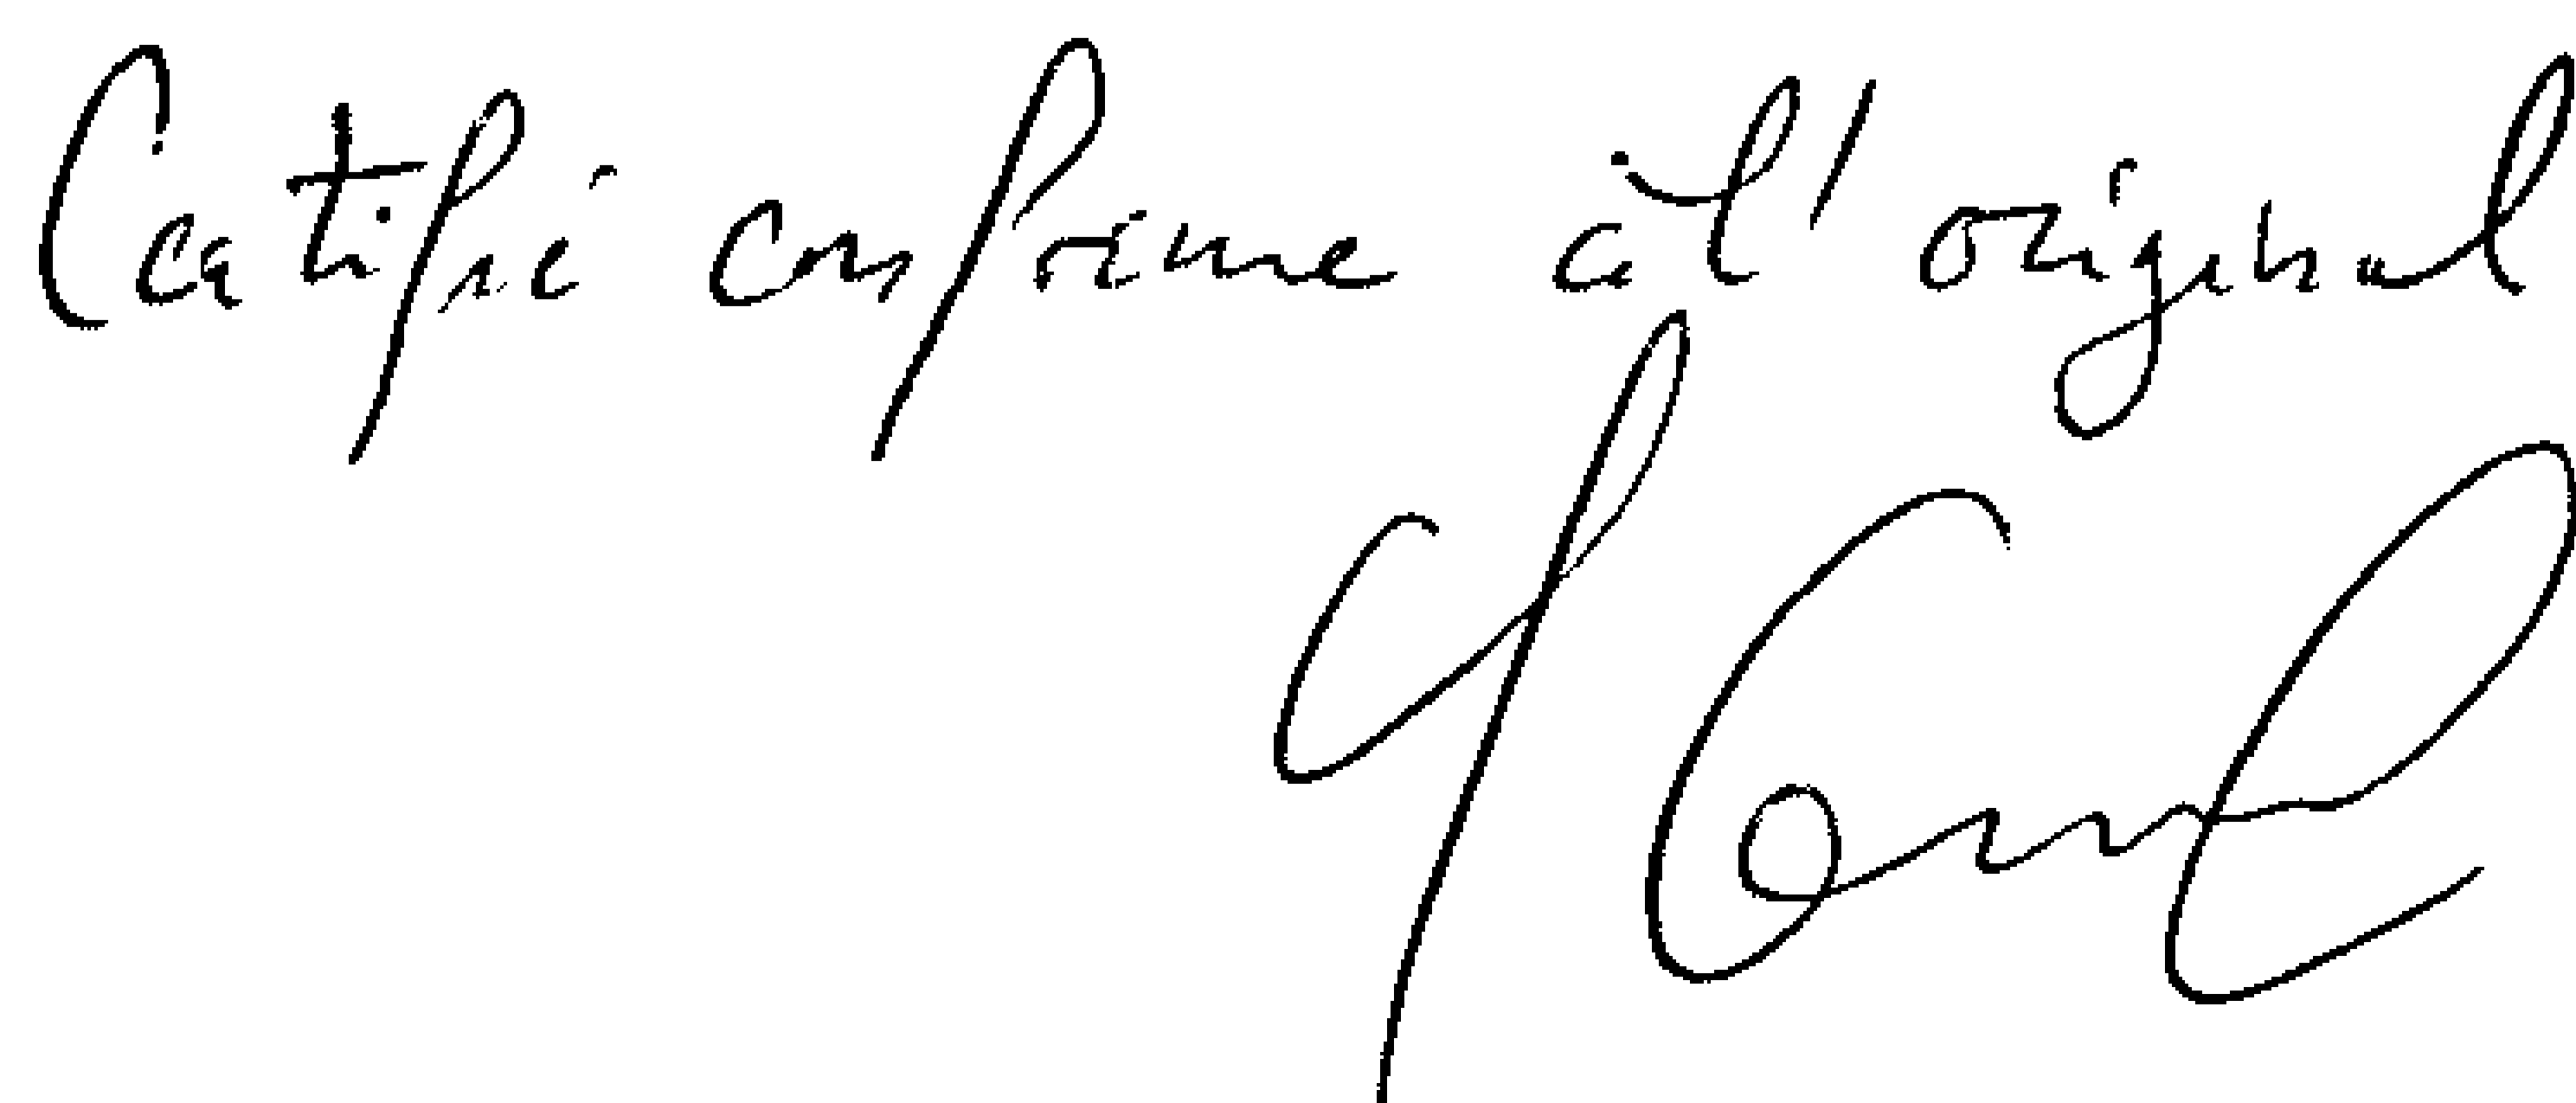 Certifié conforme à l'original